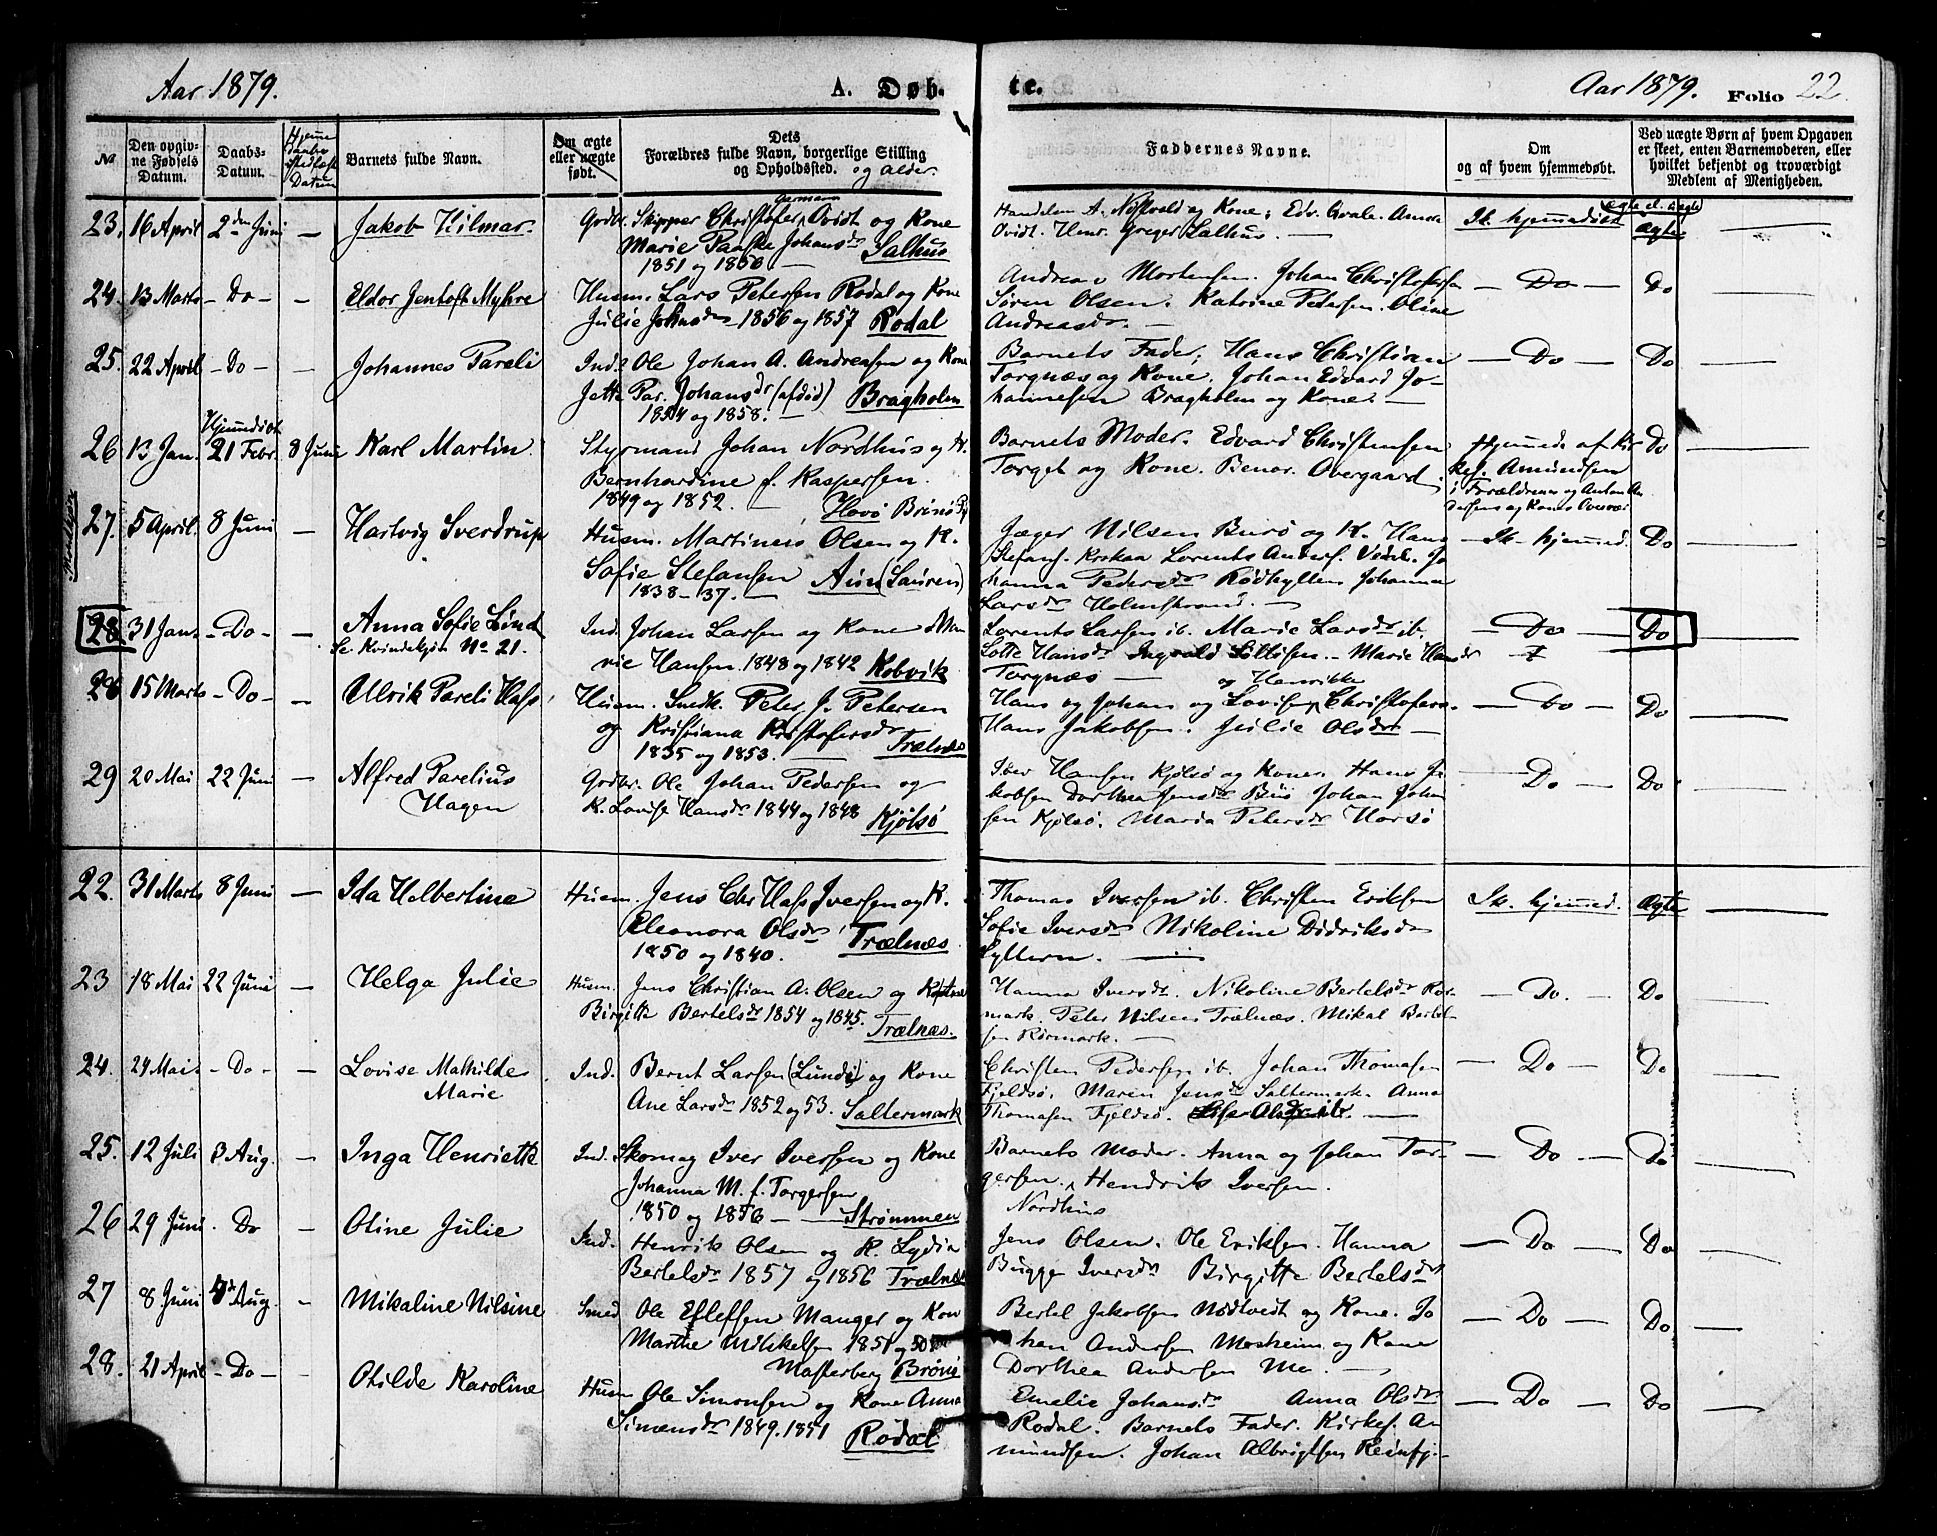 Aar 1879. A. Døb-
te. Aar 1879. Folio 22.
No Den opgivne Fødsels Datum. Daabs-Datum. Hjemme Daabs Stadfæst Datum Barnets fulde Navn. Om ægte eller uægte født. Dets Forældres fulde Navn, borgerlige Stilling og Opholdssted. og Alder.
Faddernes Navne. Om og af hvem hjemmedøbt. Ved uægte Børn af hvem Opgaven er skeet, enten Barnemoderen, eller hvilket bekjendt og troværdigt Medlem af Menigheden.
Mandkjøn
23. 16 April 2den Juni — Jakob Hilmar. Gdbr. Skipper Christofer Germann Ovidt og Kone
Marie Paaske Johansdr Salhus
1851 og 1856 —
A. og Kone; Edv. Qvale. Anna
Ovidt. Henr. Greger Salhus. —
Ik. hjemmedøbt ægte el. uægte ægte
24. 13 Marts — Do — — Eldor Jentoft Myhre Husm. Lars Petersen Rødal og Kone
Julie Johnsdr 1856 og 1857 Rødal
Andreas Mortensen. Johan Christofersen
Søren Olsen. Katrine Petersen. Oline
Andreasdr. —
— Do — Do
25. 22 April — Do — — Johannes Pareli Ind. Ole Johan A. Andreasen og Kone
Jette Par. Johansdr (afdød) Bragholmen
1854 og 1858. —
Barnets Fader; Hans Christian
Torgnæs og Kone. Johan Edvard Jo-
hannesen Bragholm og Kone. —
— Do — Do
26 13 Jan. Hjemmedøbt 21 Febr. 8 Juni Karl Martin Styrmand Johan Nordhus og K.
Bernhardine f. Kaspersen.
1849 og 1852. — Havø Brønø
Barnets Moder. Edvard Christensen
Torget og Kone. Benor. Overgaard.
Hjemmed. af Kir
kes. Amundsen
i Forældrenes og Anton An
dersens og Kones Overvær
Do
27. 5 April. 8 Juni — Hartvig Sverdrup Husm. Martinus Olsen og K.
Sofie Stefansen Aun (Sauren)
1838 — 37. —
Jæger Nilsen Burø og K. Hans
Stefans. Lorents Anders. Jo
hanna Pedersdr Rødhyllen Johanna
Larsdr Holmstrand. —
— Ik. hjemmed. Do
28 31 Jan. — Do — — Anna Sofie Lind
Se Kvindekjøn No 21.
Ind. Johan Larsen og Kone Ma
rie Hansen. 1848 og 1842 Kobvik
Lorents Larsen ib. Marie Larsdr ib.
Lotte Hansdr Ingvald Sillesen. — Marie Hansdr
Torgnæs —
— Do — Do
28 15 Marts — Do — Ulrik Pareli Hass Husm. Snedk. Peter J. Petersen
og Kristiana Kristofersdr
1835 og 1853. — Trælnæs
Hans og Johan og Lovise og Henrikke Christofers.
Hans Jakobsen. Julie Olsdr —
— Do — Do
29 20 Mai 22 Juni — Alfred Parelius
Hagen
Gdbr. Ole Johan Pedersen og
K. Lovise Hansdr 1844 og 1848 Kjølsø
Iver Hansen Kjølsø og Kone. Hans Ja
kobsen Dorthea Jensdr Johan Johan
sen Kjølsø. Maria Petersdr Horsø
— Do — Do
22. 31 Marts 8 Juni — Ida Helbertine Husm. Jens Chr Hass Iversen og K.
Eleonora Olsdr Trælnæs
1850 og 1840.
Thomas Iversen ib. Christen Eriksen
Sofie Iversdr Nikoline Didriksdr
—
Ik. hjemmed. ægte
23 18 Mai 22 Juni — Helga Julie Husm. Jens Christian A. Olsen og Kone
Birgitte Bertelsdr 1854 og 1845. Trælnæs.
Hanna Iversdr. Nikoline Bertelsdr Rør-
mark. Peter Nilsen Trælnæs. Mikal Bertel-
sen Rørmark. —
— Do. — Do
24. 24 Mai — Do — — Lovise Mathilde
Marie
Ind. Bernt Larsen (Lund) og Kone
Ane Larsdr 1852 og 53. Saltermark
Christen Pedersen ib. Johan Thomasen
Fjeldsø. Maren Jensdr Saltermark. Anna
Thomasen Fjeldsø. —
— Do — Do
25. 12 Juli 3 Aug. — Inga Henriette Ind. Skomag Iver Iversen og Kone
Johanna M. f. Torgersen
1850 og 1856 — Strømmen
Barnets Moder. Anna og Johan Tor-
gersen. Hendrik Iversen.
Nordhus
— Do — Do
26 29 Juni. Do — Oline Julie Ind. Henrik Olsen og K. Lydia
Bertelsdr 1857 og 1856 Trælnæs
Jens Olsen. Ole Eriksen. Hanna
Bugge Iversdr Birgitte Bertelsdr
— Do — Do
27 8 Juni Aug. — Mikaline Nilsine Smed Ole Ellefsen Manger og Kone
Marthe Mikkelsen 1851 og
Brønø
Bertel Jakobsen Nødtvedt og Kone. Jo
han Andersen Mosheim og Kone
Dorthea Andersen —
— Do — Do
28. 21 April — Do — Otilde Karoline Husm Ole Simonsen og Kone Anna
Simensdr 1849. 1851 Rødal
Emelie Johansdr Anna Olsdr
Rødal. Barnets Fader. Kirkes. A-
mundsen. Johan Albrigtsen Reinfj.
— Do — Do